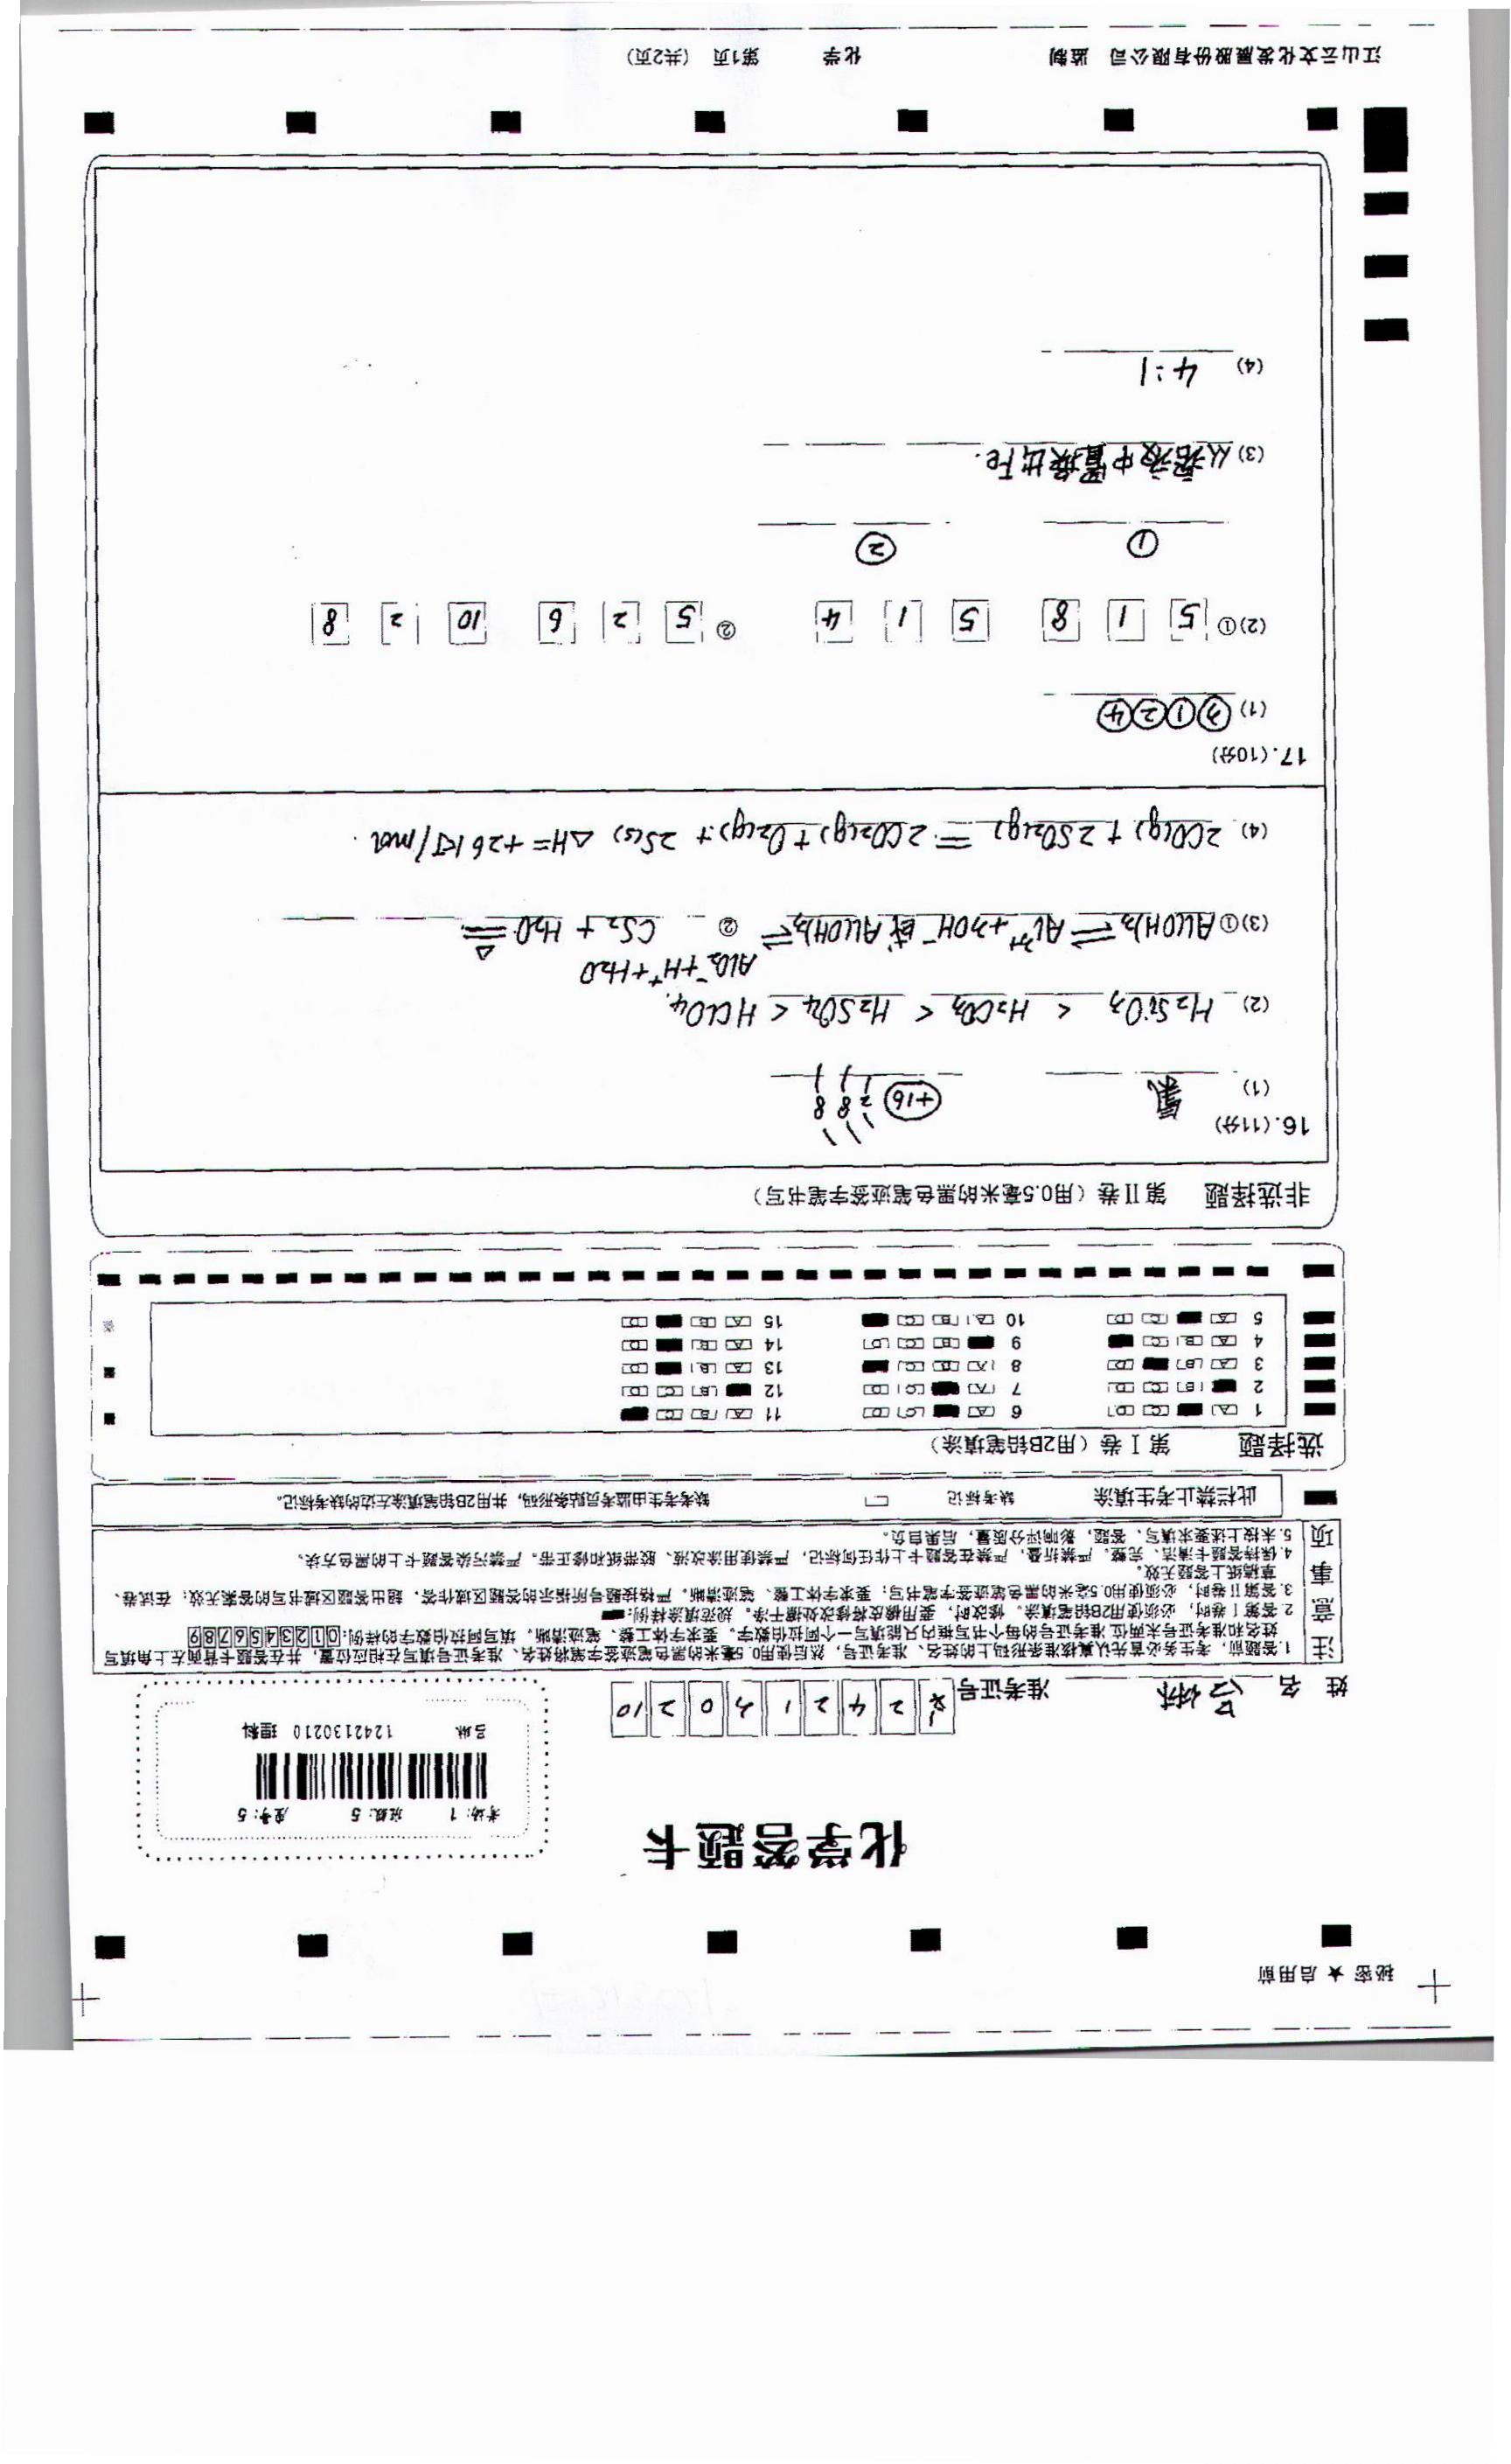 秘密★启用前
化学答题卡
考场:1 班级:5 座号:5
吕琳 1242130210 理科
姓 名 吕琳 准考证号 1 2 4 2 1 3 0 2 10
注意事项
1.答题前，考生务必首先认真核准条形码上的姓名、准考证号，然后使用0.5毫米的黑色笔迹签字笔将姓名、准考证号填写在相应位置，并在答题卡背面左上角填写
姓名和准考证号末两位,准考证号的每个书写框内只能填写一个阿拉伯数字。要求字体工整、笔迹清晰。填写阿拉伯数字的样例:0123456789
2.答第Ⅰ卷时，必须使用2B铅笔填涂。修改时，要用橡皮将修改处擦干净。规范填涂样例:
3.答第Ⅱ卷时，必须使用0.5毫米的黑色笔迹签字笔书写；要求字体工整、笔迹清晰。严格按题号所指示的答题区域作答，超出答题区域书写的答案无效；在试卷、
草稿纸上答题无效。
4.保持答题卡清洁、完整。严禁折叠，严禁在答题卡上作任何标记，严禁使用涂改液、胶带纸和修正带。严禁污染答题卡上的黑色方块。
5.未按上述要求填写、答题，影响评分质量，后果自负。
此栏禁止考生填涂 缺考标记 缺考考生由监考员贴条形码，并用2B铅笔填涂左边的缺考标记。
选择题 第Ⅰ卷（用2B铅笔填涂）
1 [A] [C] [D] 6 [A] [C] [D] 11 [A] [B] [C]
2 [B] [C] [D] 7 [A] [C] [D] 12 [B] [C] [D]
3 [A] [B] [D] 8 [A] [B] [C] 13 [A] [B] [D]
4 [A] [B] [C] 9 [B] [C] [D] 14 [A] [B] [D]
5 [A] [C] [D] 10 [A] [B] [C] 15 [A] [B] [D]
非选择题 第Ⅱ卷（用0.5毫米的黑色笔迹签字笔书写）
16.(11分)
(1) 氯 +16 2 8 8
(2) H₂SiO₃ < H₂CO₃ < H₂SO₄ < HClO₄
(3)①Al(OH)₃⇌Al³⁺+3OH⁻或Al(OH)₃⇌AlO₂⁻+H⁺+H₂O ② CS₂ + H₂O =△=
(4) 2CO(g) + 2SO₂(g) = 2CO₂(g) + O₂(g) + 2S(s) △H=+26 KJ/mol.
17.(10分)
(1) ③①②④
(2)① 5 1 8 5 1 4 ② 5 2 6 10 2 8
① ②
(3)从溶液中置换出Fe.
(4) 4:1
江山云文化发展股份有限公司 监制 化学 第1页 (共2页)